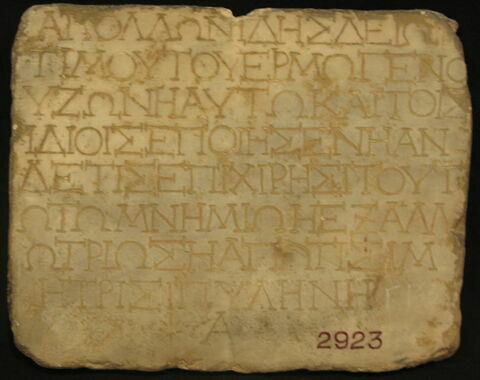 ΑΠΟΛΛΩΝΙΔΗΣΔΕΙΩ
ΤΙΜΟΥΤΟΥΕΡΜΟΓΕΝΟ
ΥΖΩΝΗΑΥΤΩΚΑΙΤΟΙΣ
ΙΔΙΟΙΣΕΠΟΙΗΣΕΝΗΑΝ
ΔΕΤΙΣΕΠΙΧΙΡΗΣΙΤΟΥΤ
ΩΤΩΜΝΗΜΙΩΗΕΞΑΛΛ
ΩΤΡΙΩΣΗ
ΠΥΛΗΝΗ
Α
2923